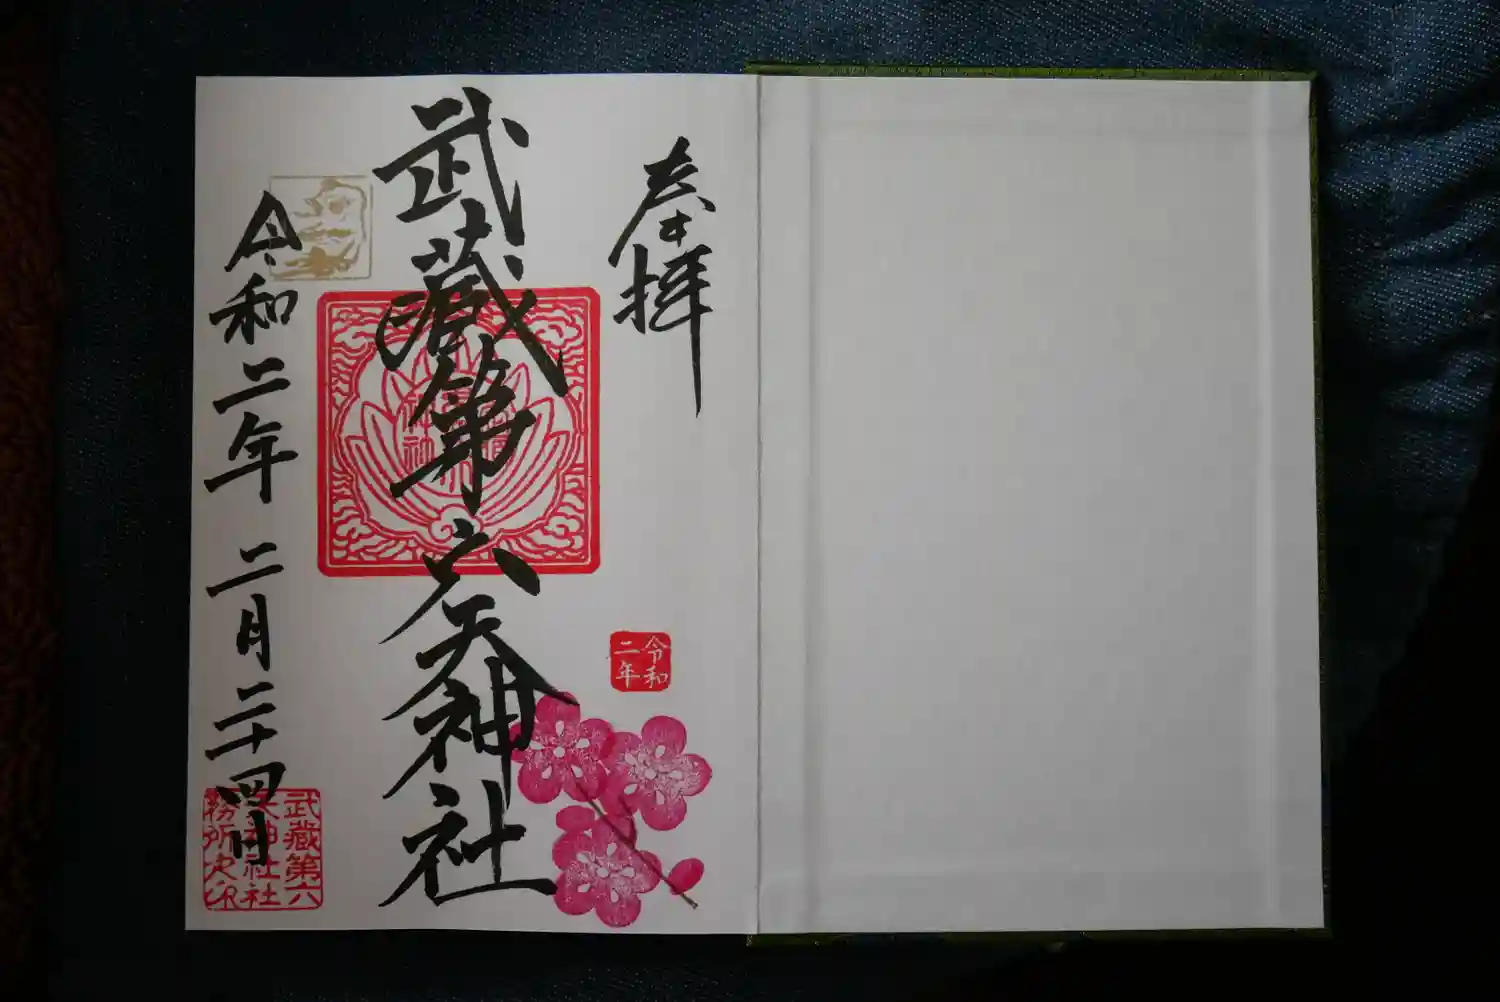 奉拝
武蔵第六天神社
令和二年二月二十四日
令和
二年
武蔵第六
天神社社
務所之印